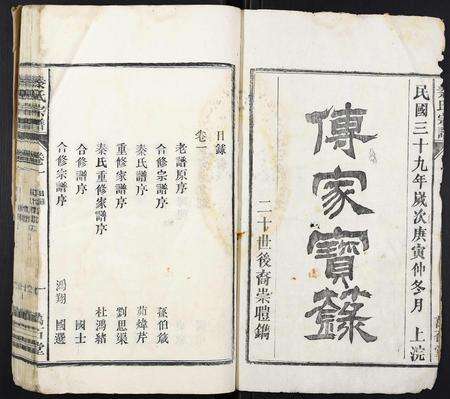 民國三十九年歲次庚寅仲冬月 上浣
傳家寶籙
二十世後裔崇暟鐫
目錄
卷一
老譜原序
合修宗譜序 孫伯箴
秦氏譜序 茆煒芹
重修家譜序 劉思渠
秦氏重修家譜序 杜鴻緒
合修士譜序 國士
合修宗譜序 鴻翔 國選
秦氏宗譜 卷一 一